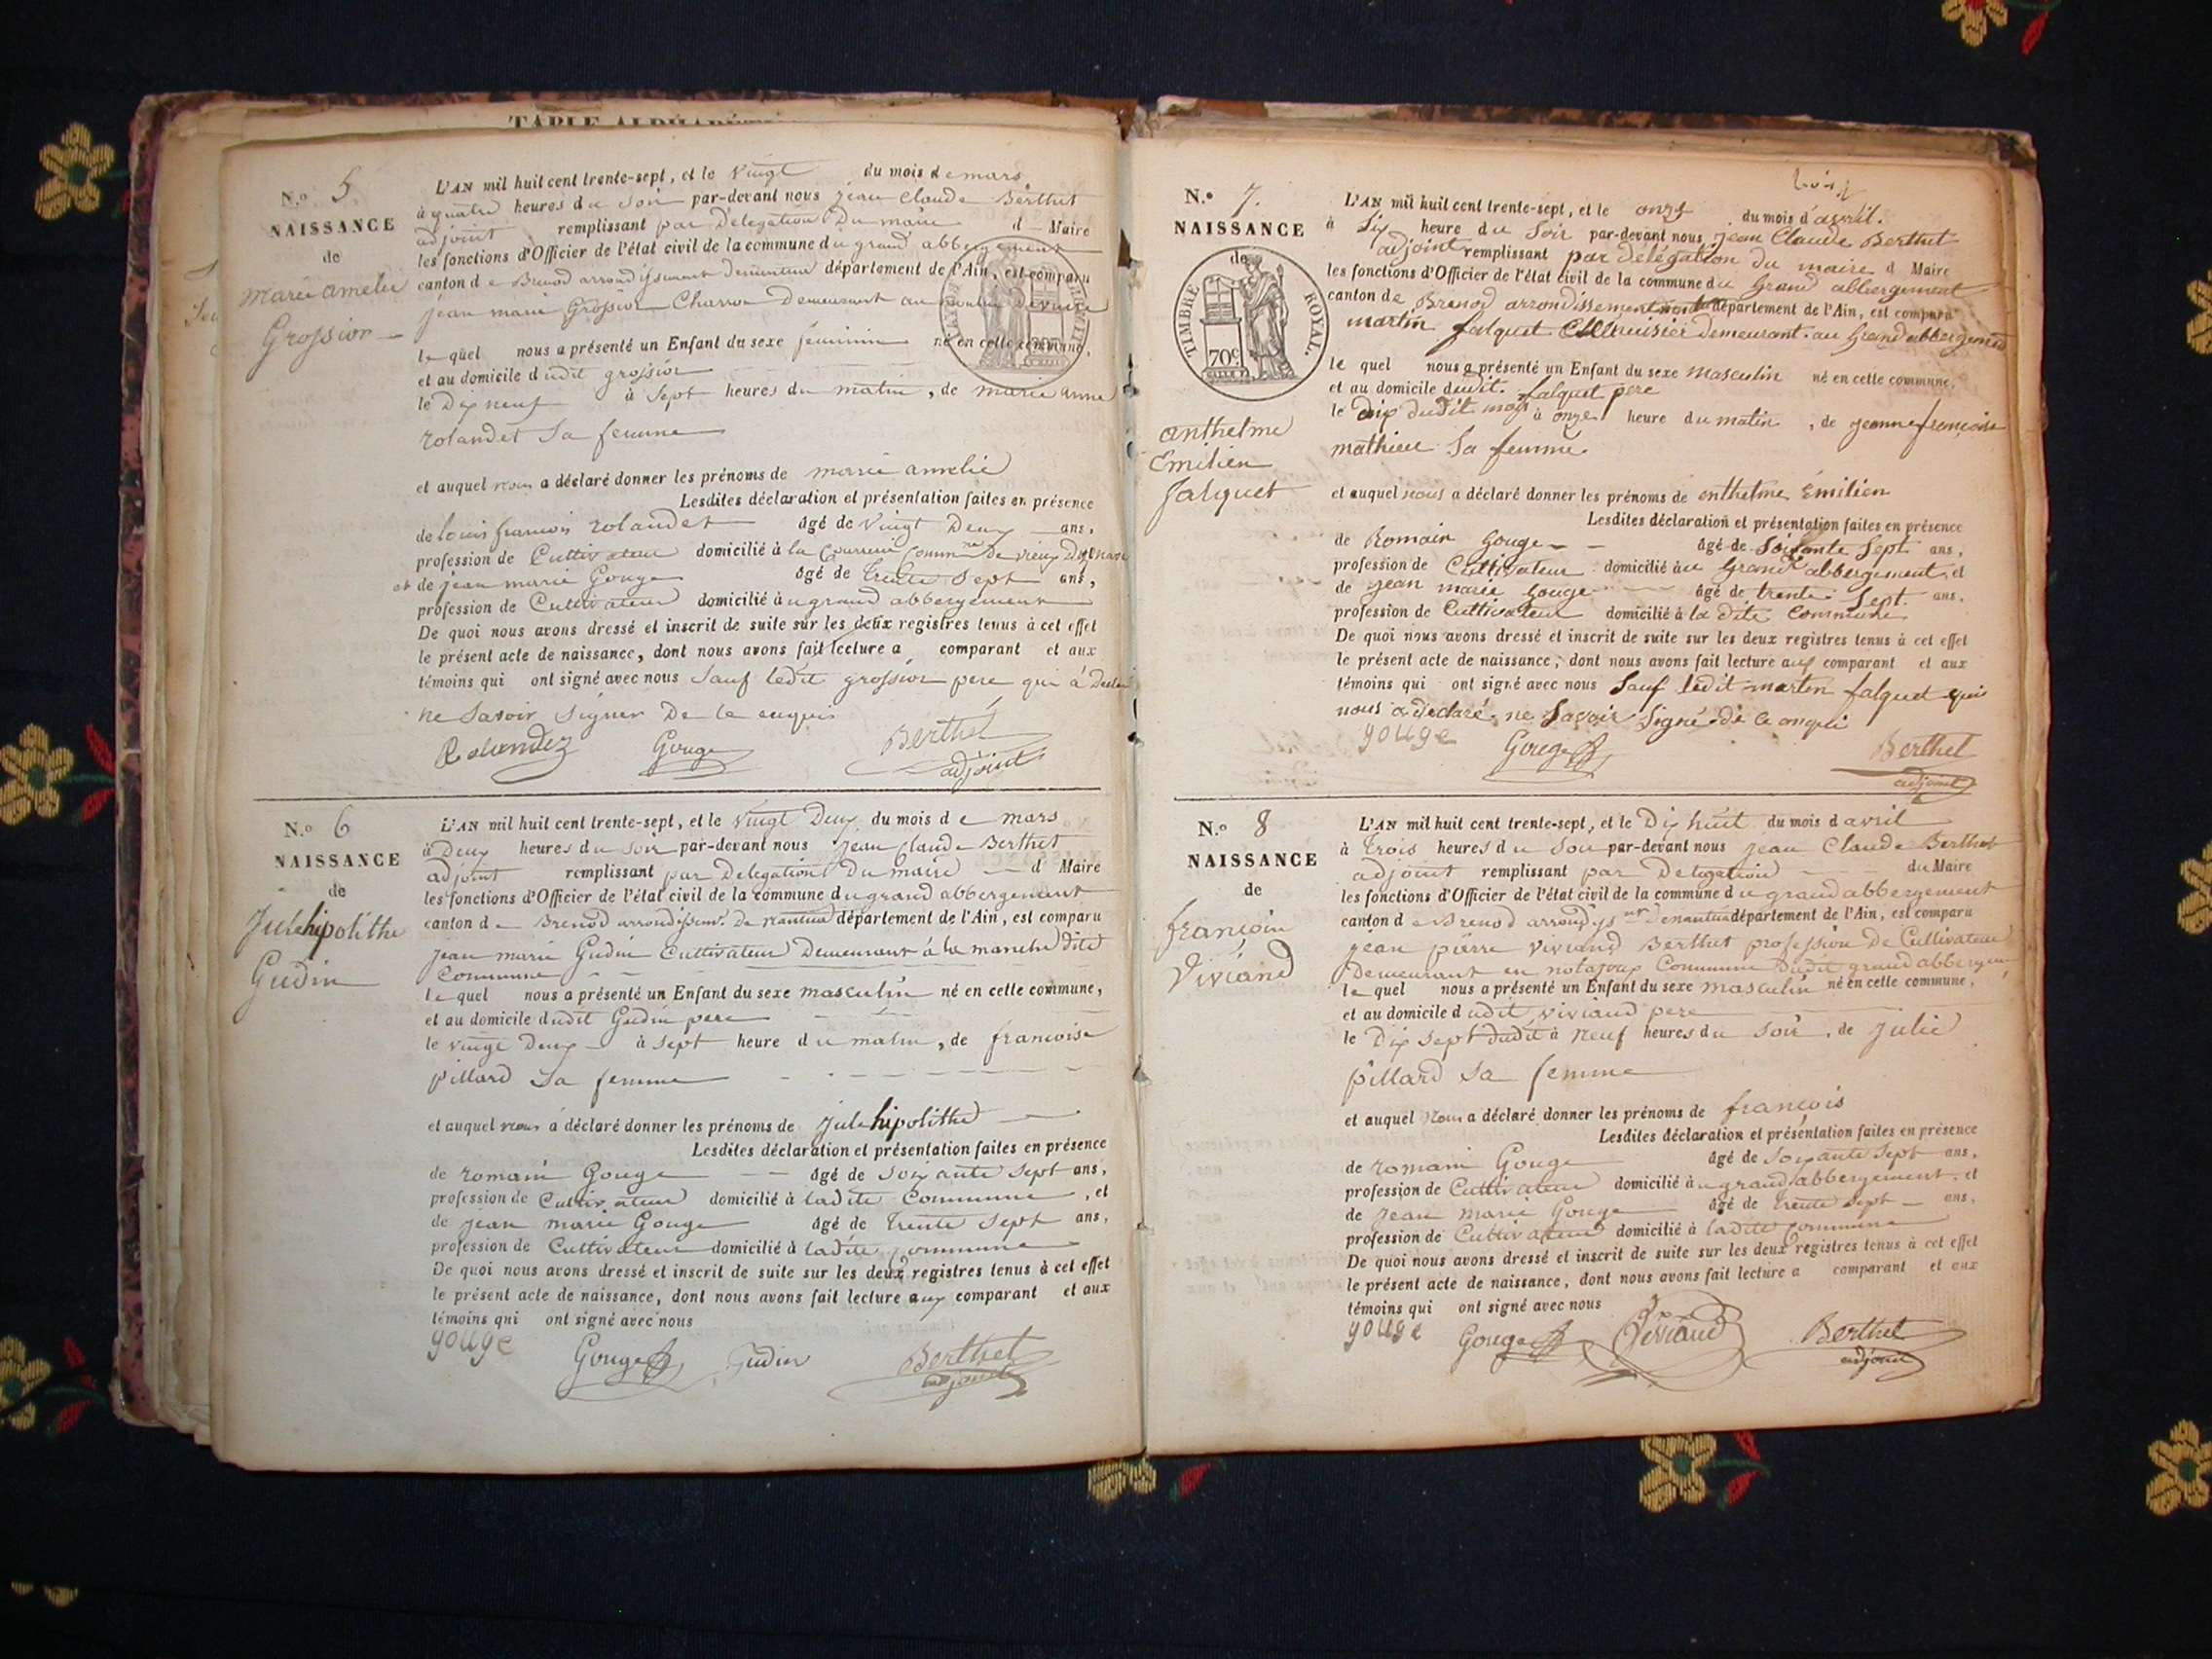 TABLE ALPHABÉT
N.o 5
NAISSANCE
de
marie amelie
Grossior
L'AN mil huit cent trente-sept, et le vingt du mois de mars
à quatre heures du soir par-devant nous jean claude Berthet
adjoint remplissant par Delegation Du maire d Maire
les fonctions d'Officier de l'état civil de la commune du grand abbergement
canton de Brenod arrondissement département de l'Ain, est comparu
jean marie Grossior Charron Demeurant au
le quel nous a présenté un Enfant du sexe feminin né en cette commune,
et au domicile dudit grossior
le Dix neuf à Sept heures du matin, de marie anne
rolandet Sa femme
et auquel nous a déclaré donner les prénoms de marie amelie
Lesdites déclaration et présentation faites en présence
de louis francois rolandet âgé de vingt Deux ans,
profession de Cultivateur domicilié à la
et de jean marie Gouge âgé de trente sept ans,
profession de Cultivateur domicilié au grand abbergement
De quoi nous avons dressé et inscrit de suite sur les deux registres tenus à cet effet
le présent acte de naissance, dont nous avons fait lecture a comparant et aux
témoins qui ont signé avec nous Sauf ledit grossior pere qui à Declaré
ne Savoir Signer De ce enquis
Rolandez Gouge Berthet
adjoint
N.o 6
NAISSANCE
de
Jule hipolithe
Gudin
L'AN mil huit cent trente-sept, et le vingt Deux du mois de mars
à Deux heures du soir par-devant nous jean claude Berthet
adjoint remplissant par Delegation Du maire d Maire
les fonctions d'Officier de l'état civil de la commune du grand abbergement
canton de Brenod arrondissemt. De nantua département de l'Ain, est comparu
jean marie Gudin Cultivateur Demeurant à la manche dite
Commune
le quel nous a présenté un Enfant du sexe masculin né en cette commune,
et au domicile dudit Gudin pere
le vingt Deux à sept heure du matin, de francoise
pillard Sa femme
et auquel nous a déclaré donner les prénoms de Jule hipolithe
Lesdites déclaration et présentation faites en présence
de romain Gouge âgé de soixante sept ans,
profession de Cultivateur domicilié à ladite Commune, et
de jean marie Gouge âgé de trente sept ans,
profession de Cultivateur domicilié à ladite commune
De quoi nous avons dressé et inscrit de suite sur les deux registres tenus à cet effet
le présent acte de naissance, dont nous avons fait lecture aux comparant et aux
témoins qui ont signé avec nous
gouge Gouge Gudin Berthet
adjoint
N.o 7.
NAISSANCE
de
TIMBRE ROYAL.
70c
anthelme
Emilien
falquet
L'AN mil huit cent trente-sept, et le onze du mois d'avril.
à Six heure du Soir par-devant nous jean Claude Berthet
adjoint remplissant par délégation du maire d Maire
les fonctions d'Officier de l'état civil de la commune du Grand abbergement
canton de Brenod arrondissement département de l'Ain, est comparu
martin falquet Menuisier demeurant au Grand abbergement
le quel nous a présenté un Enfant du sexe masculin né en cette commune,
et au domicile dudit falquet pere
le dix dudit mois à onze heure du matin, de jeanne francoise
mathieu Sa femme
et auquel nous a déclaré donner les prénoms de enthelme Émilien
Lesdites déclaration et présentation faites en présence
de Romain Gouge âgé de Soixante Sept ans,
profession de Cultivateur domicilié au Grand abbergement, et
de jean marie Gouge âgé de trente Sept ans,
profession de Cultivateur domicilié à la dite Commune
De quoi nous avons dressé et inscrit de suite sur les deux registres tenus à cet effet
le présent acte de naissance, dont nous avons fait lecture aux comparant et aux
témoins qui ont signé avec nous Sauf ledit martin falquet qui
nous a déclaré ne Savoir Signé de ce
gouge Gouge Berthet
adjoint
N.o 8
NAISSANCE
de
francois
Viviand
L'AN mil huit cent trente-sept, et le Dix huit du mois d avril
à trois heures du Soir par-devant nous jean Claude Berthet
adjoint remplissant par Delegation du Maire
les fonctions d'Officier de l'état civil de la commune du grand abbergement
canton de Brenod denantua département de l'Ain, est comparu
jean pierre viviand Berthet profession De Cultivateur
Demeurant en Commune Dudit grand abbergem
le quel nous a présenté un Enfant du sexe masculin né en cette commune,
et au domicile dudit viviand pere
le Dix Sept dudit à neuf heures du soir, de julie
pillard Sa femme
et auquel nous a déclaré donner les prénoms de francois
Lesdites déclaration et présentation faites en présence
de romain Gouge âgé de soixante sept ans,
profession de Cultivateur domicilié au grand abbergement, et
de jean marie Gouge âgé de trente sept ans,
profession de Cultivateur domicilié à ladite commune
De quoi nous avons dressé et inscrit de suite sur les deux registres tenus à cet effet
le présent acte de naissance, dont nous avons fait lecture a comparant et aux
témoins qui ont signé avec nous
gouge Gouge Viviand Berthet
adjoint